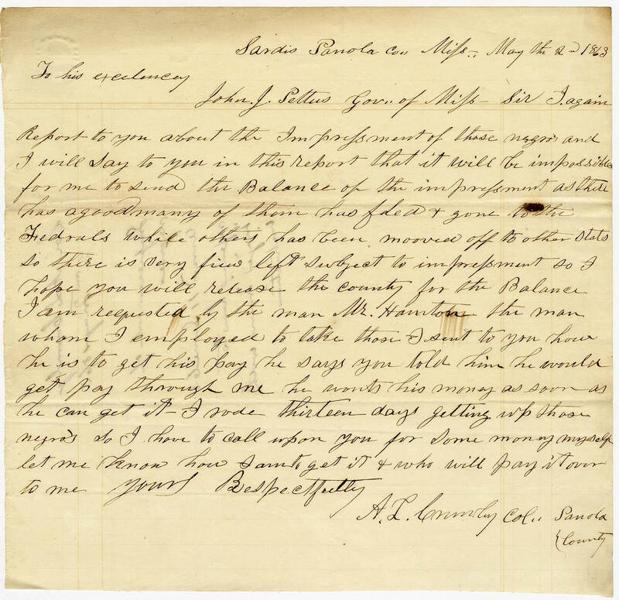 Sardis Panola cou Miss. May the 2d 1863
To his excelencey
John. J. Pettus Gov. of Miss - Sir I. again
Report to you about the Impressment of those negros and
I will say to you in this report that it will be impossible
for me to send the Balance of the impressment as there
has a good many of them has fled & gone to the
Fedrals while others has been mooved off to other States
so there is very few left subject to impressment so I
hope you will release the county for the Balance
I am requested by the man Mr. the man
whom I employed to take those I sent to you how
he is to get his pay he says you told him he would
get pay through me he wonts his money as soon as
he can get it - I rode thirteen days getting up those
negro's so I have to call upon you for some money myself
let me know how I am to get it & who will pay it over
to me yours Respectfully
A. L. Col. Panola
County